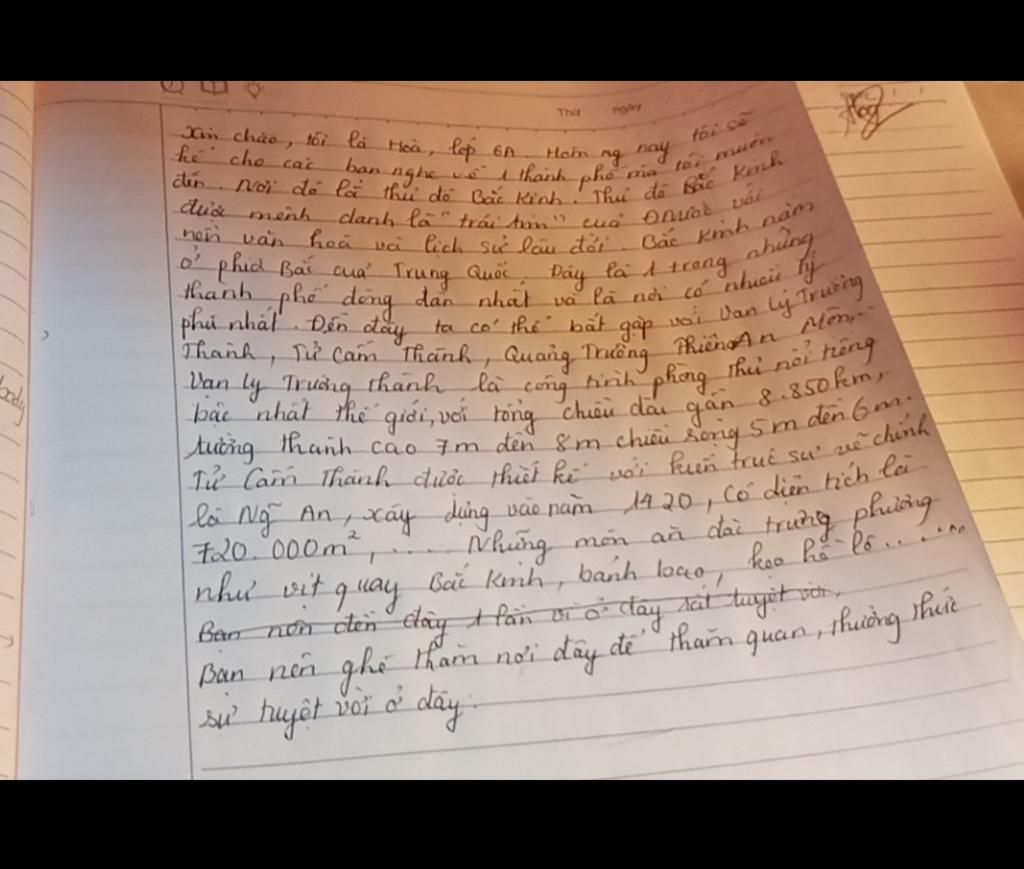 Thứ ngày
Xin chào, tôi là Hoà, lớp 6A. Hôm ng nay tôi sẽ
kể cho các bạn nghe về 1 thành phố mà tôi muốn
đến. Nơi đó là thủ đô Bắc Kinh. Thủ đô Bắc Kinh
được mệnh danh là "trái tim" của với
nền văn hoá và lịch sử lâu đời. Bắc Kinh nằm
ở phía Bắc của Trung Quốc. Đây là 1 trong những
thành phố đông dân nhất và là nơi có nhiều tỷ
phú nhất. Đến đây ta có thể bắt gặp với Vạn Lý Trường
Thành, Tử Cấm Thành, Quảng Trường Thiên An Môn,
Vạn lý Trường thành là công trình phòng thủ nổi tiếng
bậc nhất thế giới, với tổng chiều dài gần 8.850km,
tường thành cao 7m đến 8m chiều rộng 5m đến 6m.
Tử Cấm Thành được thiết kế với kiến trúc sư vẽ chính
là Ngỡ An, xây dựng vào năm 1420, có diện tích là
720.000m², .... Những món ăn đặc trưng phương
như vịt quay Bắc Kinh, bánh bao, kẹo hồ lô......
Bạn nên đến đây 1 lần vì ở đây rất tuyệt vời,
Bạn nên ghé thăm nơi đây để thăm quan, thưởng thức
sự tuyệt vời ở đây.
body